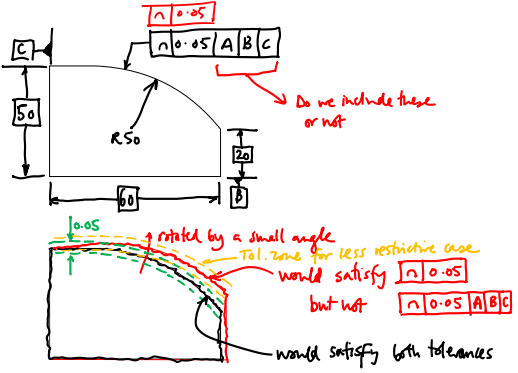 ∩ 0.05
C
∩ 0.05 A B C
50
R50
Do we include these
or not
20
60
B
0.05
rotated by a small angle
Tol. zone for less restrictive case
would satisfy ∩ 0.05
but not ∩ 0.05 A B C
would satisfy both tolerances